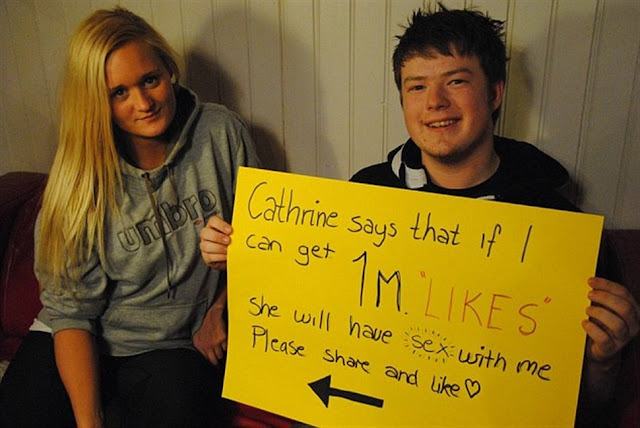 umbro
Cathrine says that if I
can get 1M. "LIKES"
she will have sex with me
Please share and like♡